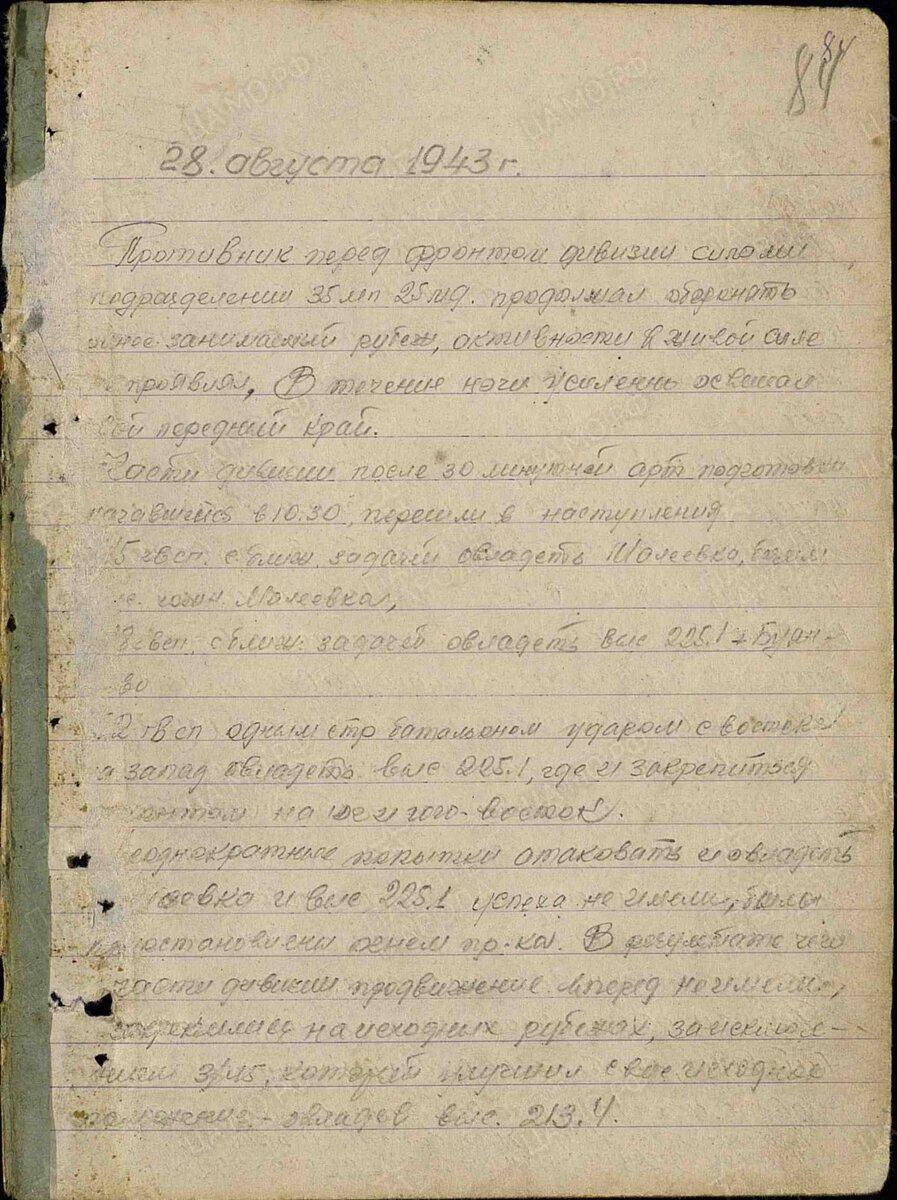 84
28. августа 1943 г.
Противник перед фронтом дивизии силами
подразделений 35 мп 25 мд. продолжал оборонять
занимаемый рубеж, активности живой силе
проявлял, В течение ночи усиленно освещал
свой передний край.
Части дивизии после 30 минутной арт подготовки
начавшейся в 10.30, перешли в наступления
5 гвсп. с ближ. задачей овладеть Малеевка,
Малеевка,
гвсп. с ближ. задачей овладеть выс 225.1
во
22 гвсп одним стр батальоном ударом с востока
на запад овладеть выс 225.1, где и закрепиться
фронтом на юг и юго-восток.
Неоднократные попытки атаковать и овладеть
выс 225.1 успеха не имели, были
остановлены огнем пр-ка. В результате чего
части дивизии продвижение вперед не имели,
закрепились на исходных рубежах, за исключе-
нием 3/15, который улучшил свое исходное
положение - овладев выс. 213.4.